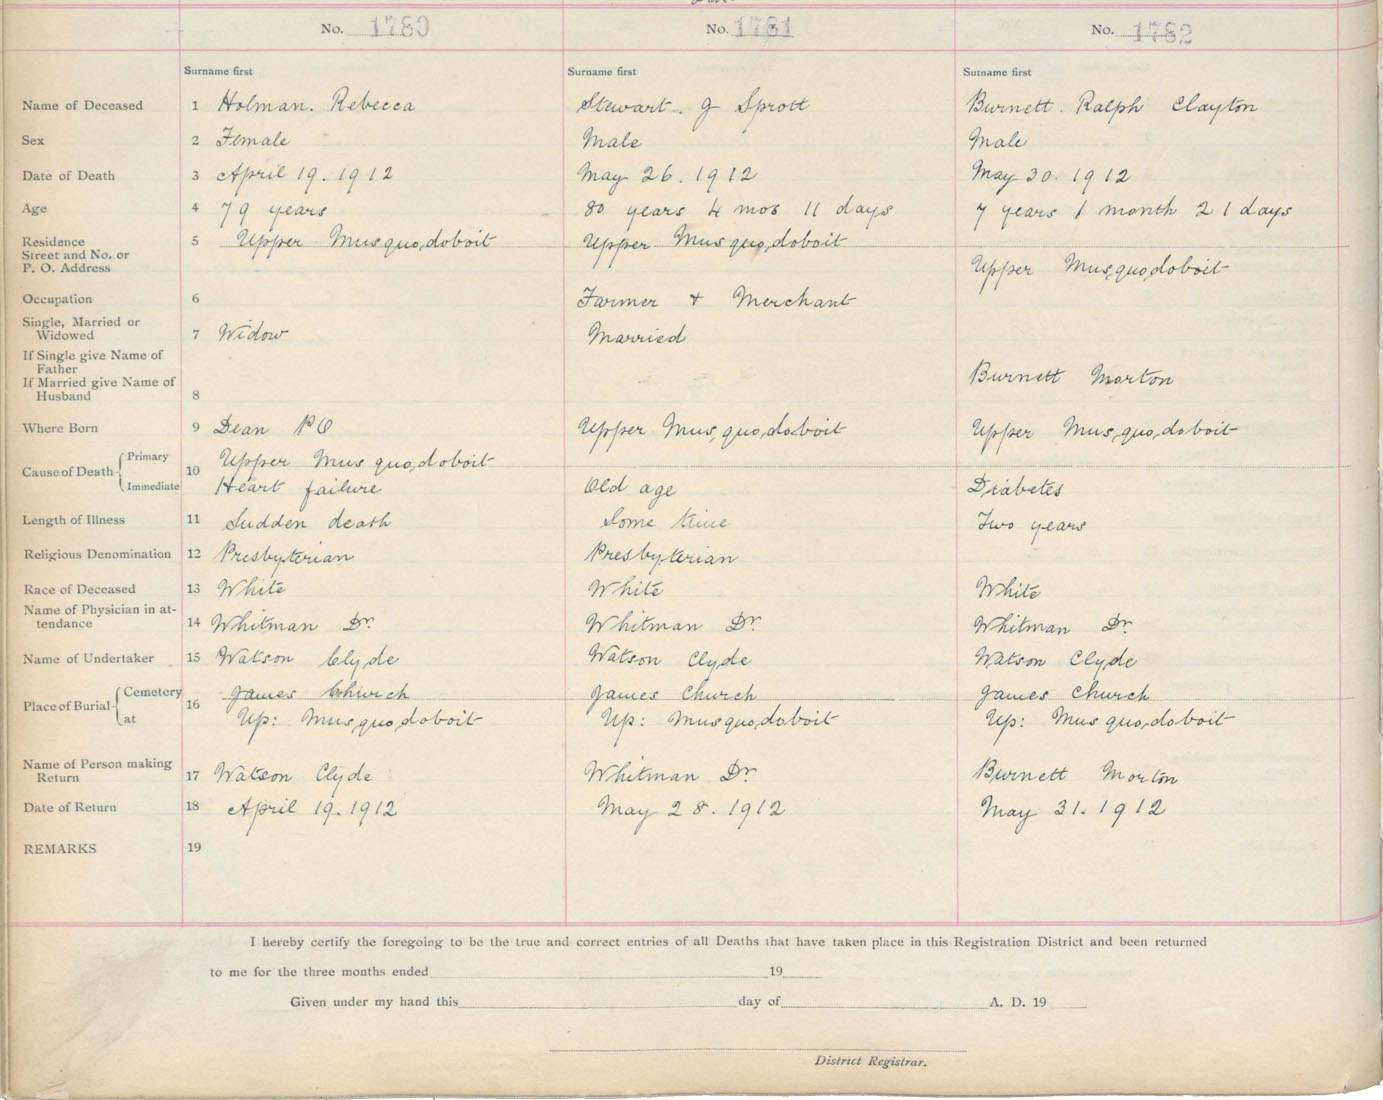 No. 1780 No. 1781 No. 1782
Surname first Surname first Surname first
Name of Deceased 1 Holman. Rebecca Stewart. J Sprott Burnett. Ralph Clayton
Sex 2 Female Male Male
Date of Death 3 April 19. 1912 May 26. 1912 May 30. 1912
Age 4 79 years 80 years 4 mos 11 days 7 years 1 month 21 days
Residence 5 Upper Musquodoboit Upper Musquodoboit
Street and No. or
P. O. Address Upper Musquodoboit
Occupation 6 Farmer + Merchant
Single, Married or
Widowed 7 Widow Married
If Single give Name of
Father
If Married give Name of Burnett Morton
Husband 8
Where Born 9 Dean PO Upper Musquodoboit Upper Musquodoboit
Primary Upper Musquodoboit
Cause of Death 10
Immediate Heart failure Old age Diabetes
Length of Illness 11 Sudden death Some time Two years
Religious Denomination 12 Presbyterian Presbyterian
Race of Deceased 13 White White White
Name of Physician in at-
tendance 14 Whitman Dr. Whitman Dr. Whitman Dr.
Name of Undertaker 15 Watson Clyde Watson Clyde Watson Clyde
Cemetery James Church James Church James Church
Place of Burial 16
at Up: Musquodoboit Up: Musquodoboit Up: Musquodoboit
Name of Person making
Return 17 Watson Clyde Whitman Dr. Burnett Morton
Date of Return 18 April 19. 1912 May 28. 1912 May 31. 1912
REMARKS 19
I hereby certify the foregoing to be the true and correct entries of all Deaths that have taken place in this Registration District and been returned
to me for the three months ended 19
Given under my hand this day of A. D. 19
District Registrar.